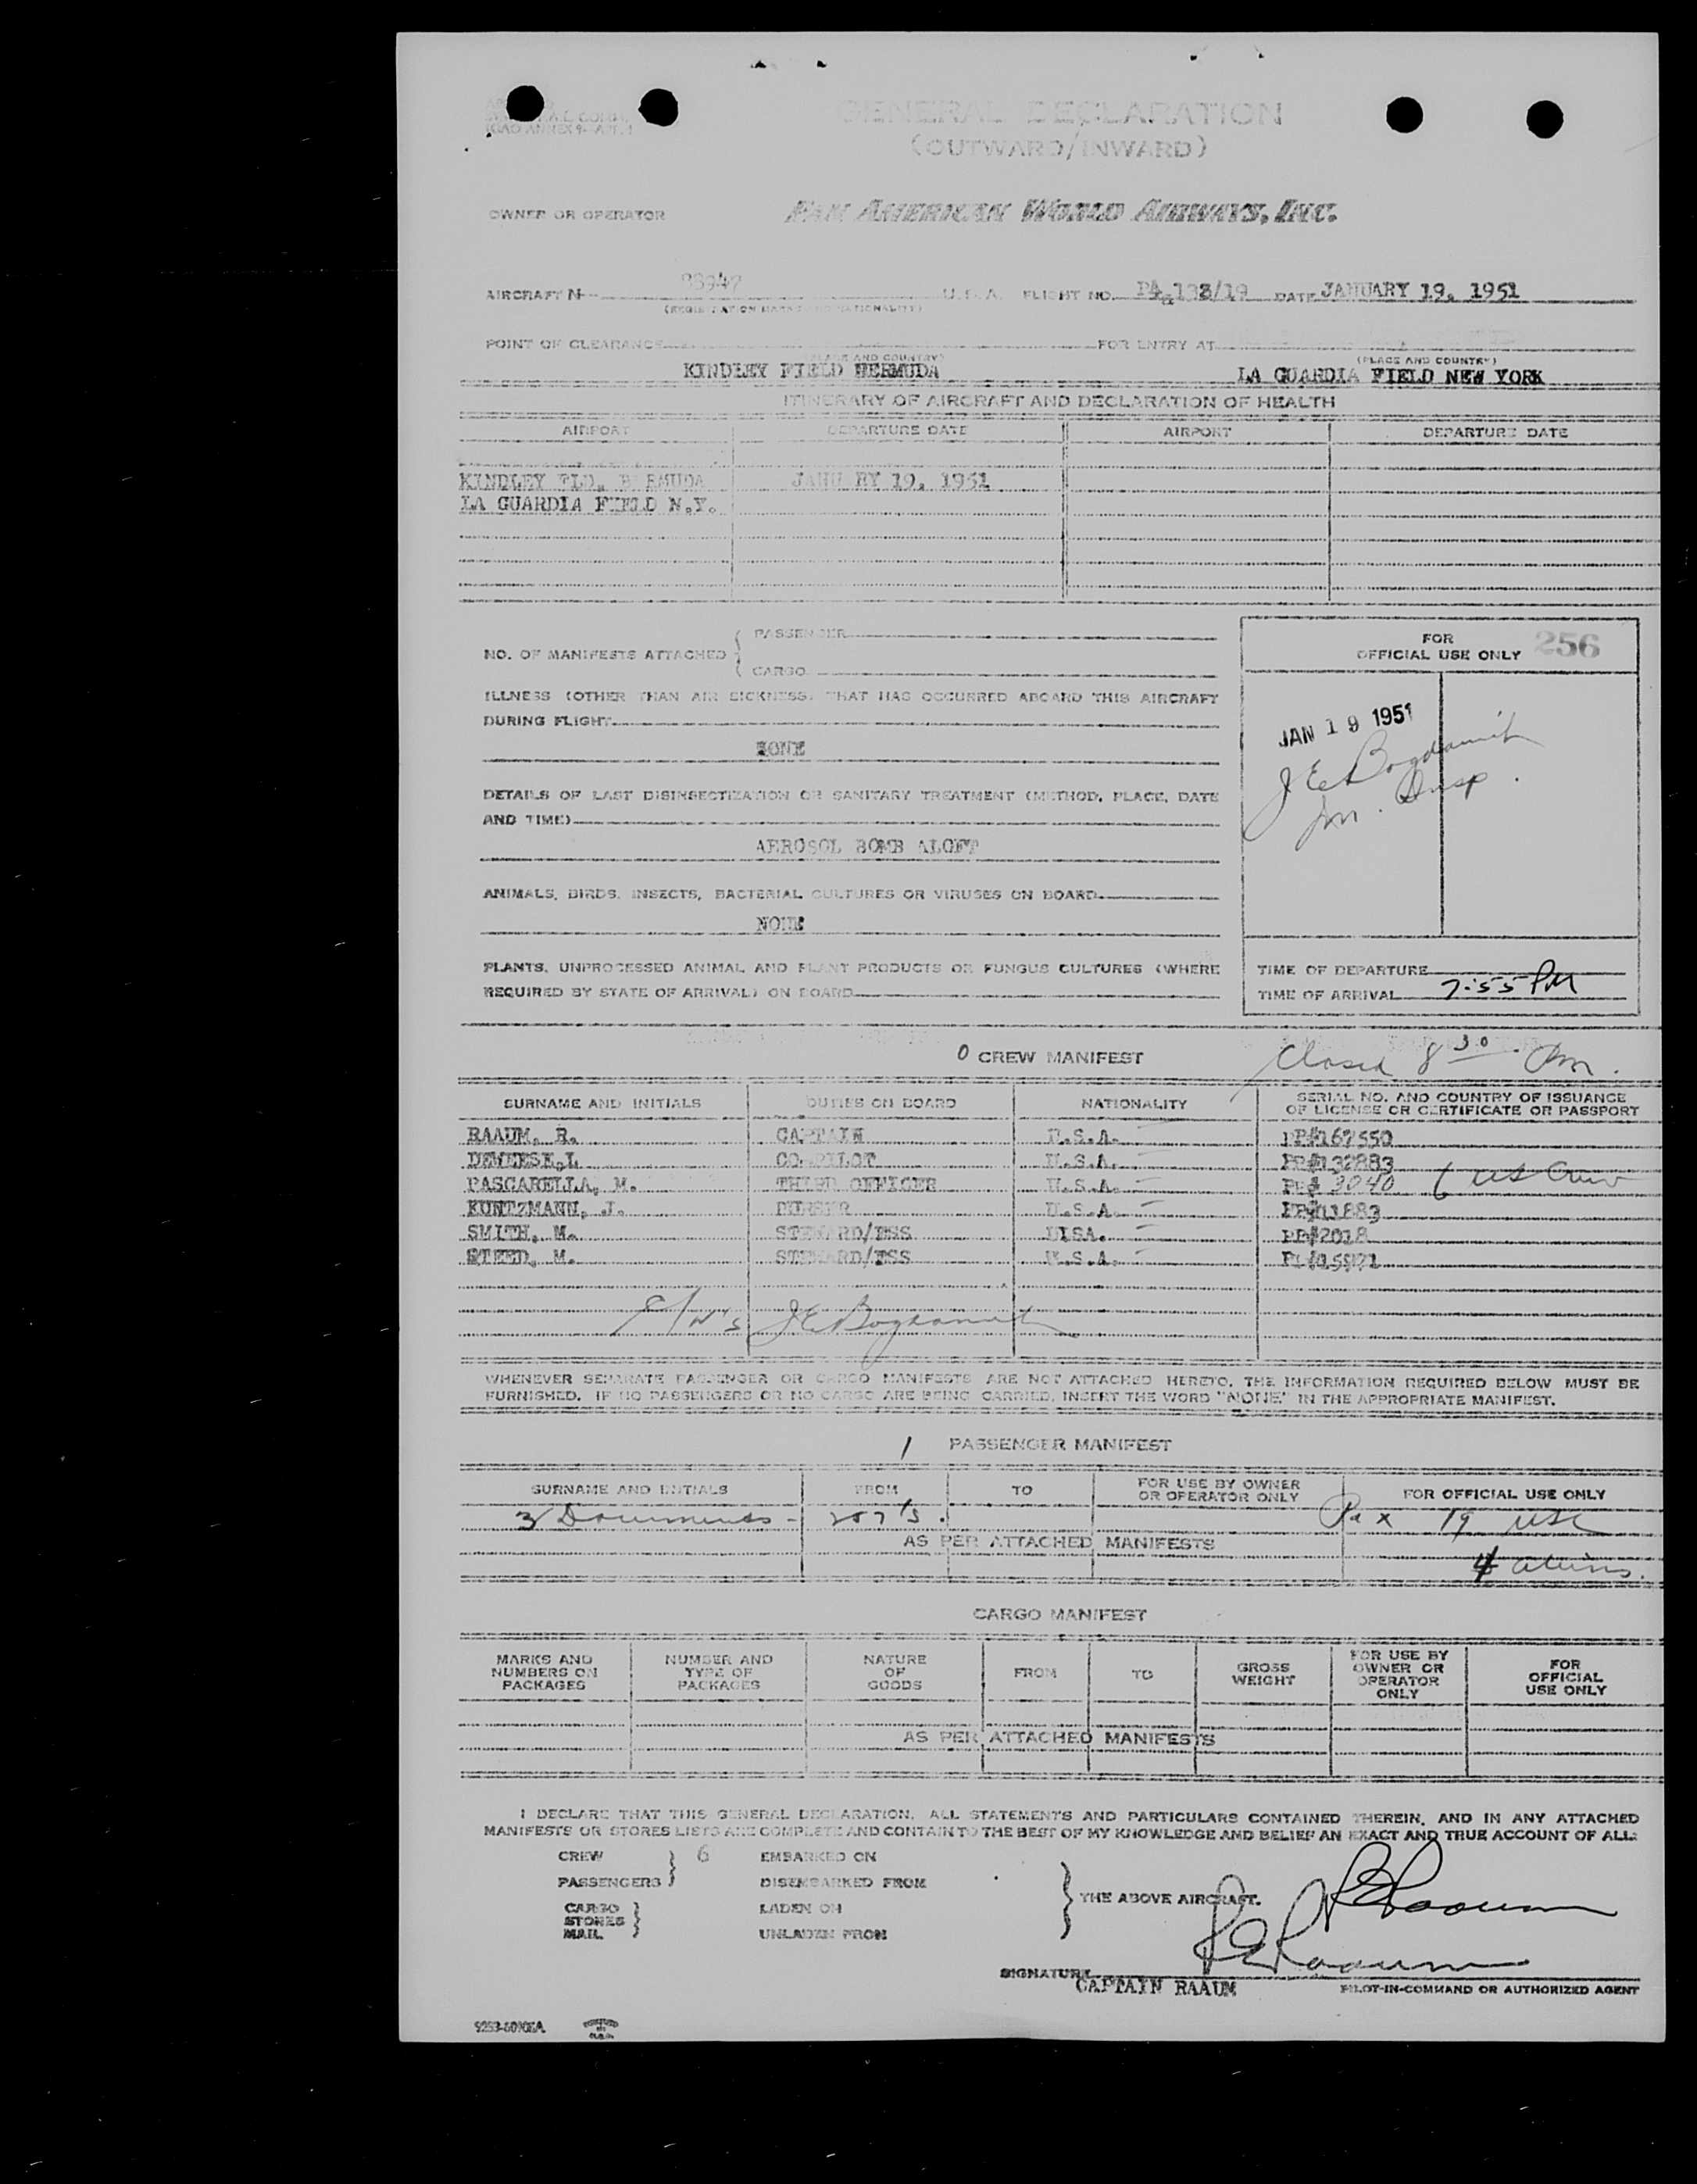 GENERAL DECLARATION
(OUTWARD/INWARD)
OWNER OR OPERATOR PAN AMERICAN WORLD AIRWAYS, INC.
AIRCRAFT N- 88947 U.S.A. FLIGHT NO. PA 138/19 DATE JANUARY 19, 1951
(REGISTRATION MARKS AND NATIONALITY)
POINT OF CLEARANCE FOR ENTRY AT
(PLACE AND COUNTRY) (PLACE AND COUNTRY)
KINDLEY FIELD BERMUDA LA GUARDIA FIELD NEW YORK
ITINERARY OF AIRCRAFT AND DECLARATION OF HEALTH
AIRPORT DEPARTURE DATE AIRPORT DEPARTURE DATE
KINDLEY FLD. BERMUDA JANUARY 19, 1951
LA GUARDIA FIELD N.Y.
NO. OF MANIFESTS ATTACHED { PASSENGER
CARGO
FOR OFFICIAL USE ONLY 256
ILLNESS (OTHER THAN AIR SICKNESS) THAT HAS OCCURRED ABOARD THIS AIRCRAFT
DURING FLIGHT
NONE
JAN 19 1951
J E Bogdanich
Im. Insp.
DETAILS OF LAST DISINSECTIZATION OR SANITARY TREATMENT (METHOD, PLACE, DATE
AND TIME)
AEROSOL BOMB ALOFT
ANIMALS, BIRDS, INSECTS, BACTERIAL CULTURES OR VIRUSES ON BOARD
NONE
PLANTS, UNPROCESSED ANIMAL AND PLANT PRODUCTS OR FUNGUS CULTURES (WHERE
REQUIRED BY STATE OF ARRIVAL) ON BOARD
TIME OF DEPARTURE
TIME OF ARRIVAL 7:55 PM
0 CREW MANIFEST Closed 8 30 Pm.
SURNAME AND INITIALS DUTIES ON BOARD NATIONALITY SERIAL NO. AND COUNTRY OF ISSUANCE
OF LICENSE OR CERTIFICATE OR PASSPORT
RAAUM, R. CAPTAIN U.S.A. PP#167550
DEWEESE, L CO-PILOT U.S.A. PP#132883
PASCARELLA, M. THIRD OFFICER U.S.A. PP# 3040 6 US Crew
KUNTZMANN, J. PURSER U.S.A. PP#11883
SMITH, M. STEWARD/ESS UISA. PP#2018
STEED, M. STEWARD/ESS U.S.A. PP#15971
J E Bogdanich
WHENEVER SEPARATE PASSENGER OR CARGO MANIFESTS ARE NOT ATTACHED HERETO, THE INFORMATION REQUIRED BELOW MUST BE
FURNISHED. IF NO PASSENGERS OR NO CARGO ARE BEING CARRIED, INSERT THE WORD "NONE" IN THE APPROPRIATE MANIFEST.
1 PASSENGER MANIFEST
SURNAME AND INITIALS FROM TO FOR USE BY OWNER OR OPERATOR ONLY FOR OFFICIAL USE ONLY
3 Documents - 257's. Pax 19 USC
AS PER ATTACHED MANIFESTS
4 aliens.
CARGO MANIFEST
MARKS AND NUMBERS ON PACKAGES NUMBER AND TYPE OF PACKAGES NATURE OF GOODS FROM TO GROSS WEIGHT FOR USE BY OWNER OR OPERATOR ONLY FOR OFFICIAL USE ONLY
AS PER ATTACHED MANIFESTS
I DECLARE THAT THIS GENERAL DECLARATION, ALL STATEMENTS AND PARTICULARS CONTAINED THEREIN, AND IN ANY ATTACHED
MANIFESTS OR STORES LISTS ARE COMPLETE AND CONTAIN TO THE BEST OF MY KNOWLEDGE AND BELIEF AN EXACT AND TRUE ACCOUNT OF ALL:
CREW 6 EMBARKED ON
PASSENGERS DISEMBARKED FROM
CARGO LADEN ON THE ABOVE AIRCRAFT.
STORES
MAIL UNLADEN FROM
R E Raaum
R E Raaum
SIGNATURE
CAPTAIN RAAUM PILOT-IN-COMMAND OR AUTHORIZED AGENT